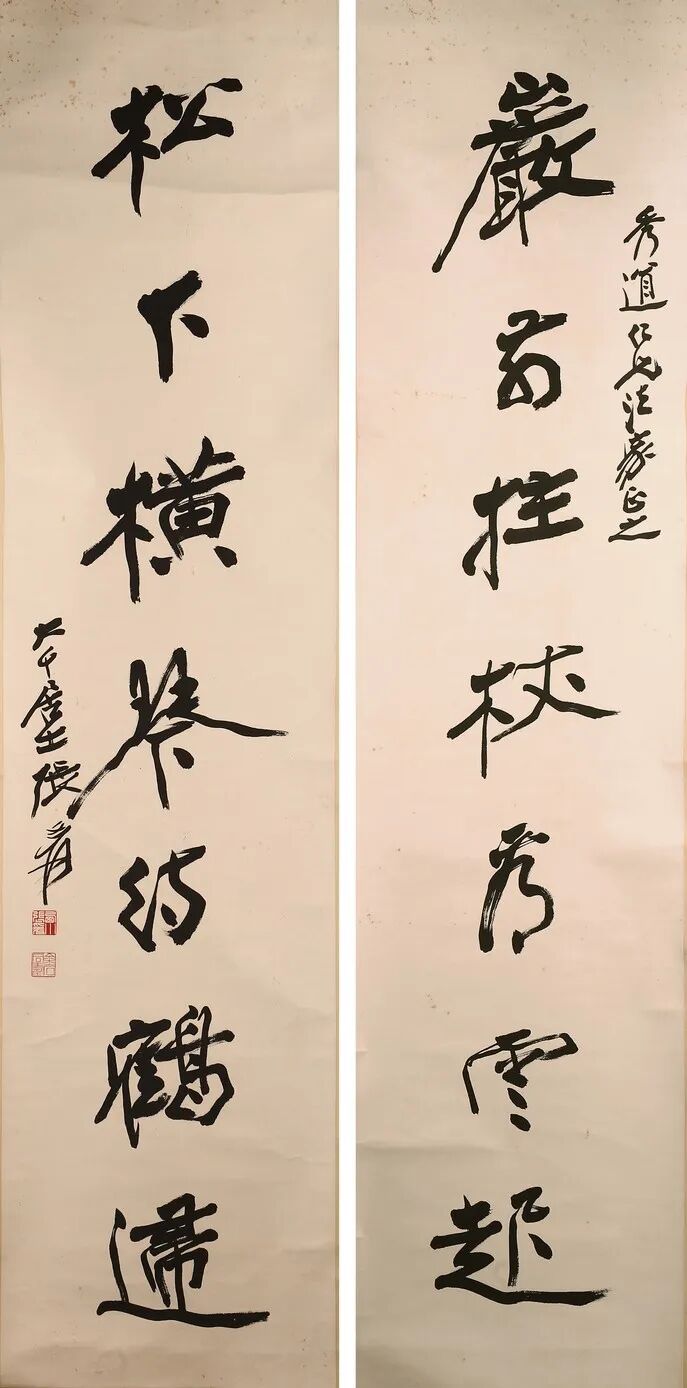 巖前拄杖看雲起
秀道仁兄法家正之
松下橫琴待鶴歸
大千居士張爰